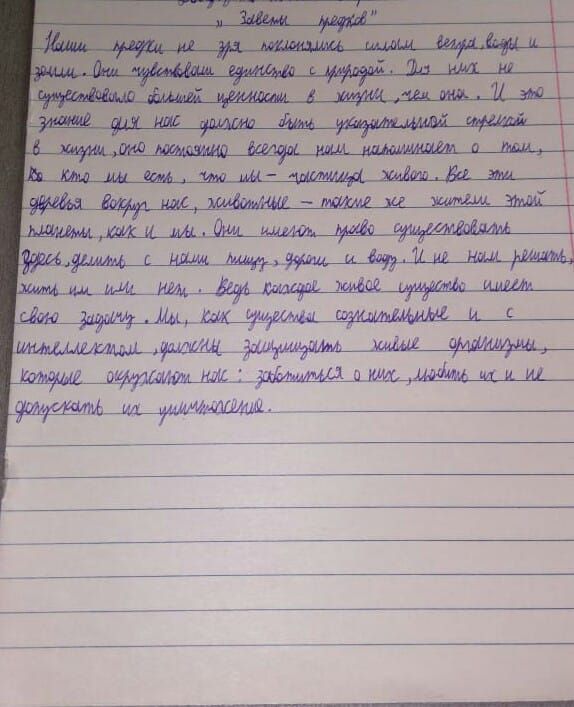 „Заветы предков"
Наши предки не зря поклонялись силам ветра, воды и
земли. Они чувствовали единство с природой. Для них не
существовало большей ценности в жизни, чем она. И это
знание для нас должно быть указательной стрелкой
в жизни, оно постоянно всегда нам напоминает о том,
кто мы есть, что мы – частица живого. Все эти
деревья вокруг нас, животные – такие же жители этой
планеты, как и мы. Они имеют право существовать
здесь, делить с нами пищу, дороги и воду. И не нам решать,
жить им или нет. Ведь каждое живое существо имеет
свою задачу. Мы, как существа сознательные и с
интеллектом, должны защищать живые организмы,
которые окружают нас: заботиться о них, любить их и не
допускать их уничтожения.